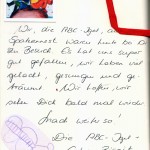 Wir, die ABC-Igel, a
Spatzennest waren heute bei Dir
zu Besuch. Es hat uns super
gut gefallen, wir haben viel
gelacht, gesungen und ge-
träumt. Wir hoffen, wir
sehen Dich bald mal wieder
Mach weiter so!
Die ABC-Igel-